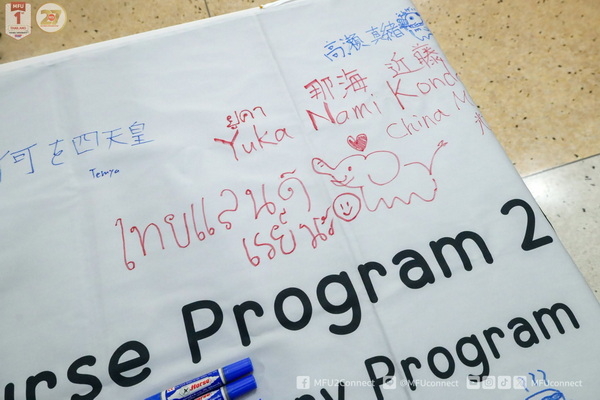 MFU
1
高瀬
那海 近藤
ยูคา
Yuka Nami Kond
China M
何を四天皇
Tesaya
ไทยแลนด์
เรย์นะ
urse Program 2
ny Program
Horse
MFU2Connect @MFUconnect MFUconnect